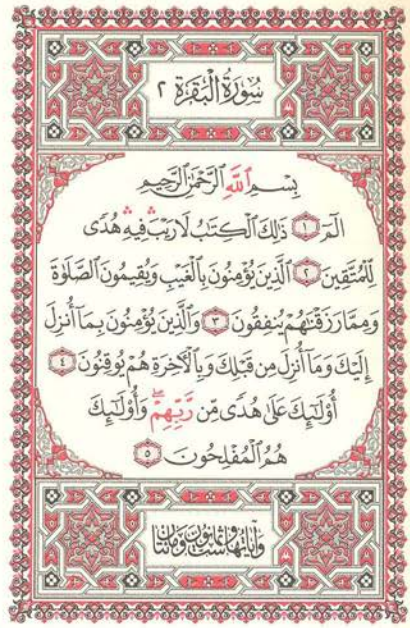 سُورَةُ الْبَقَرَةِ ٢
بِسْمِ اللَّهِ الرَّحْمَٰنِ الرَّحِيمِ
الٓمٓ ١ ذَٰلِكَ الْكِتَابُ لَا رَيْبَ ۛ فِيهِ ۛ هُدًى
لِّلْمُتَّقِينَ ٢ الَّذِينَ يُؤْمِنُونَ بِالْغَيْبِ وَيُقِيمُونَ الصَّلَوٰةَ
وَمِمَّا رَزَقْنَٰهُمْ يُنفِقُونَ ٣ وَالَّذِينَ يُؤْمِنُونَ بِمَآ أُنزِلَ
إِلَيْكَ وَمَآ أُنزِلَ مِن قَبْلِكَ وَبِالْآخِرَةِ هُمْ يُوقِنُونَ ٤
أُو۟لَٰٓئِكَ عَلَىٰ هُدًى مِّن رَّبِّهِمْ ۖ وَأُو۟لَٰٓئِكَ
هُمُ الْمُفْلِحُونَ ٥
وَآيَاتُهَا سِتٌّ وَثَمَانُونَ وَمِائَتَانِ